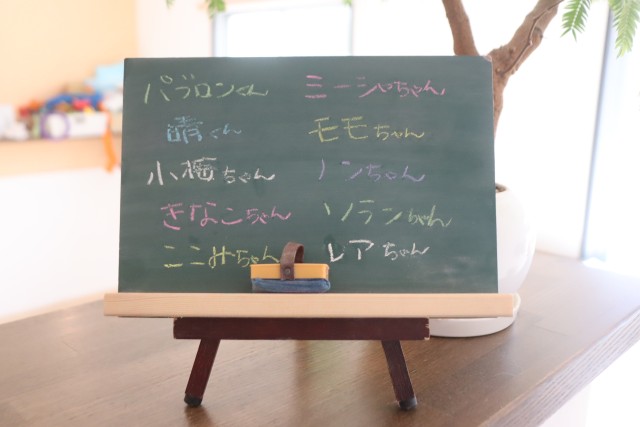 パブロンくん
晴くん
小梅ちゃん
きなこちゃん
ここみちゃん
ミーシャちゃん
モモちゃん
ノンちゃん
ソランちゃん
レアちゃん